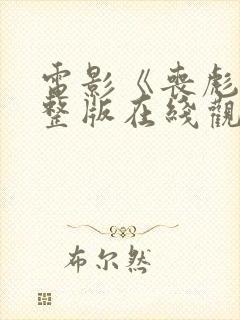 電影《喪彪
整版在綫觀
布尔然